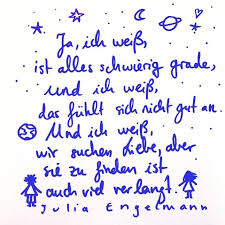 Ja, ich weiß,
ist alles schwierig grade,
und ich weiß,
das fühlt sich nicht gut an.
Und ich weiß,
wir suchen Liebe, aber
sie zu finden ist
auch viel verlangt.
Julia Engelmann